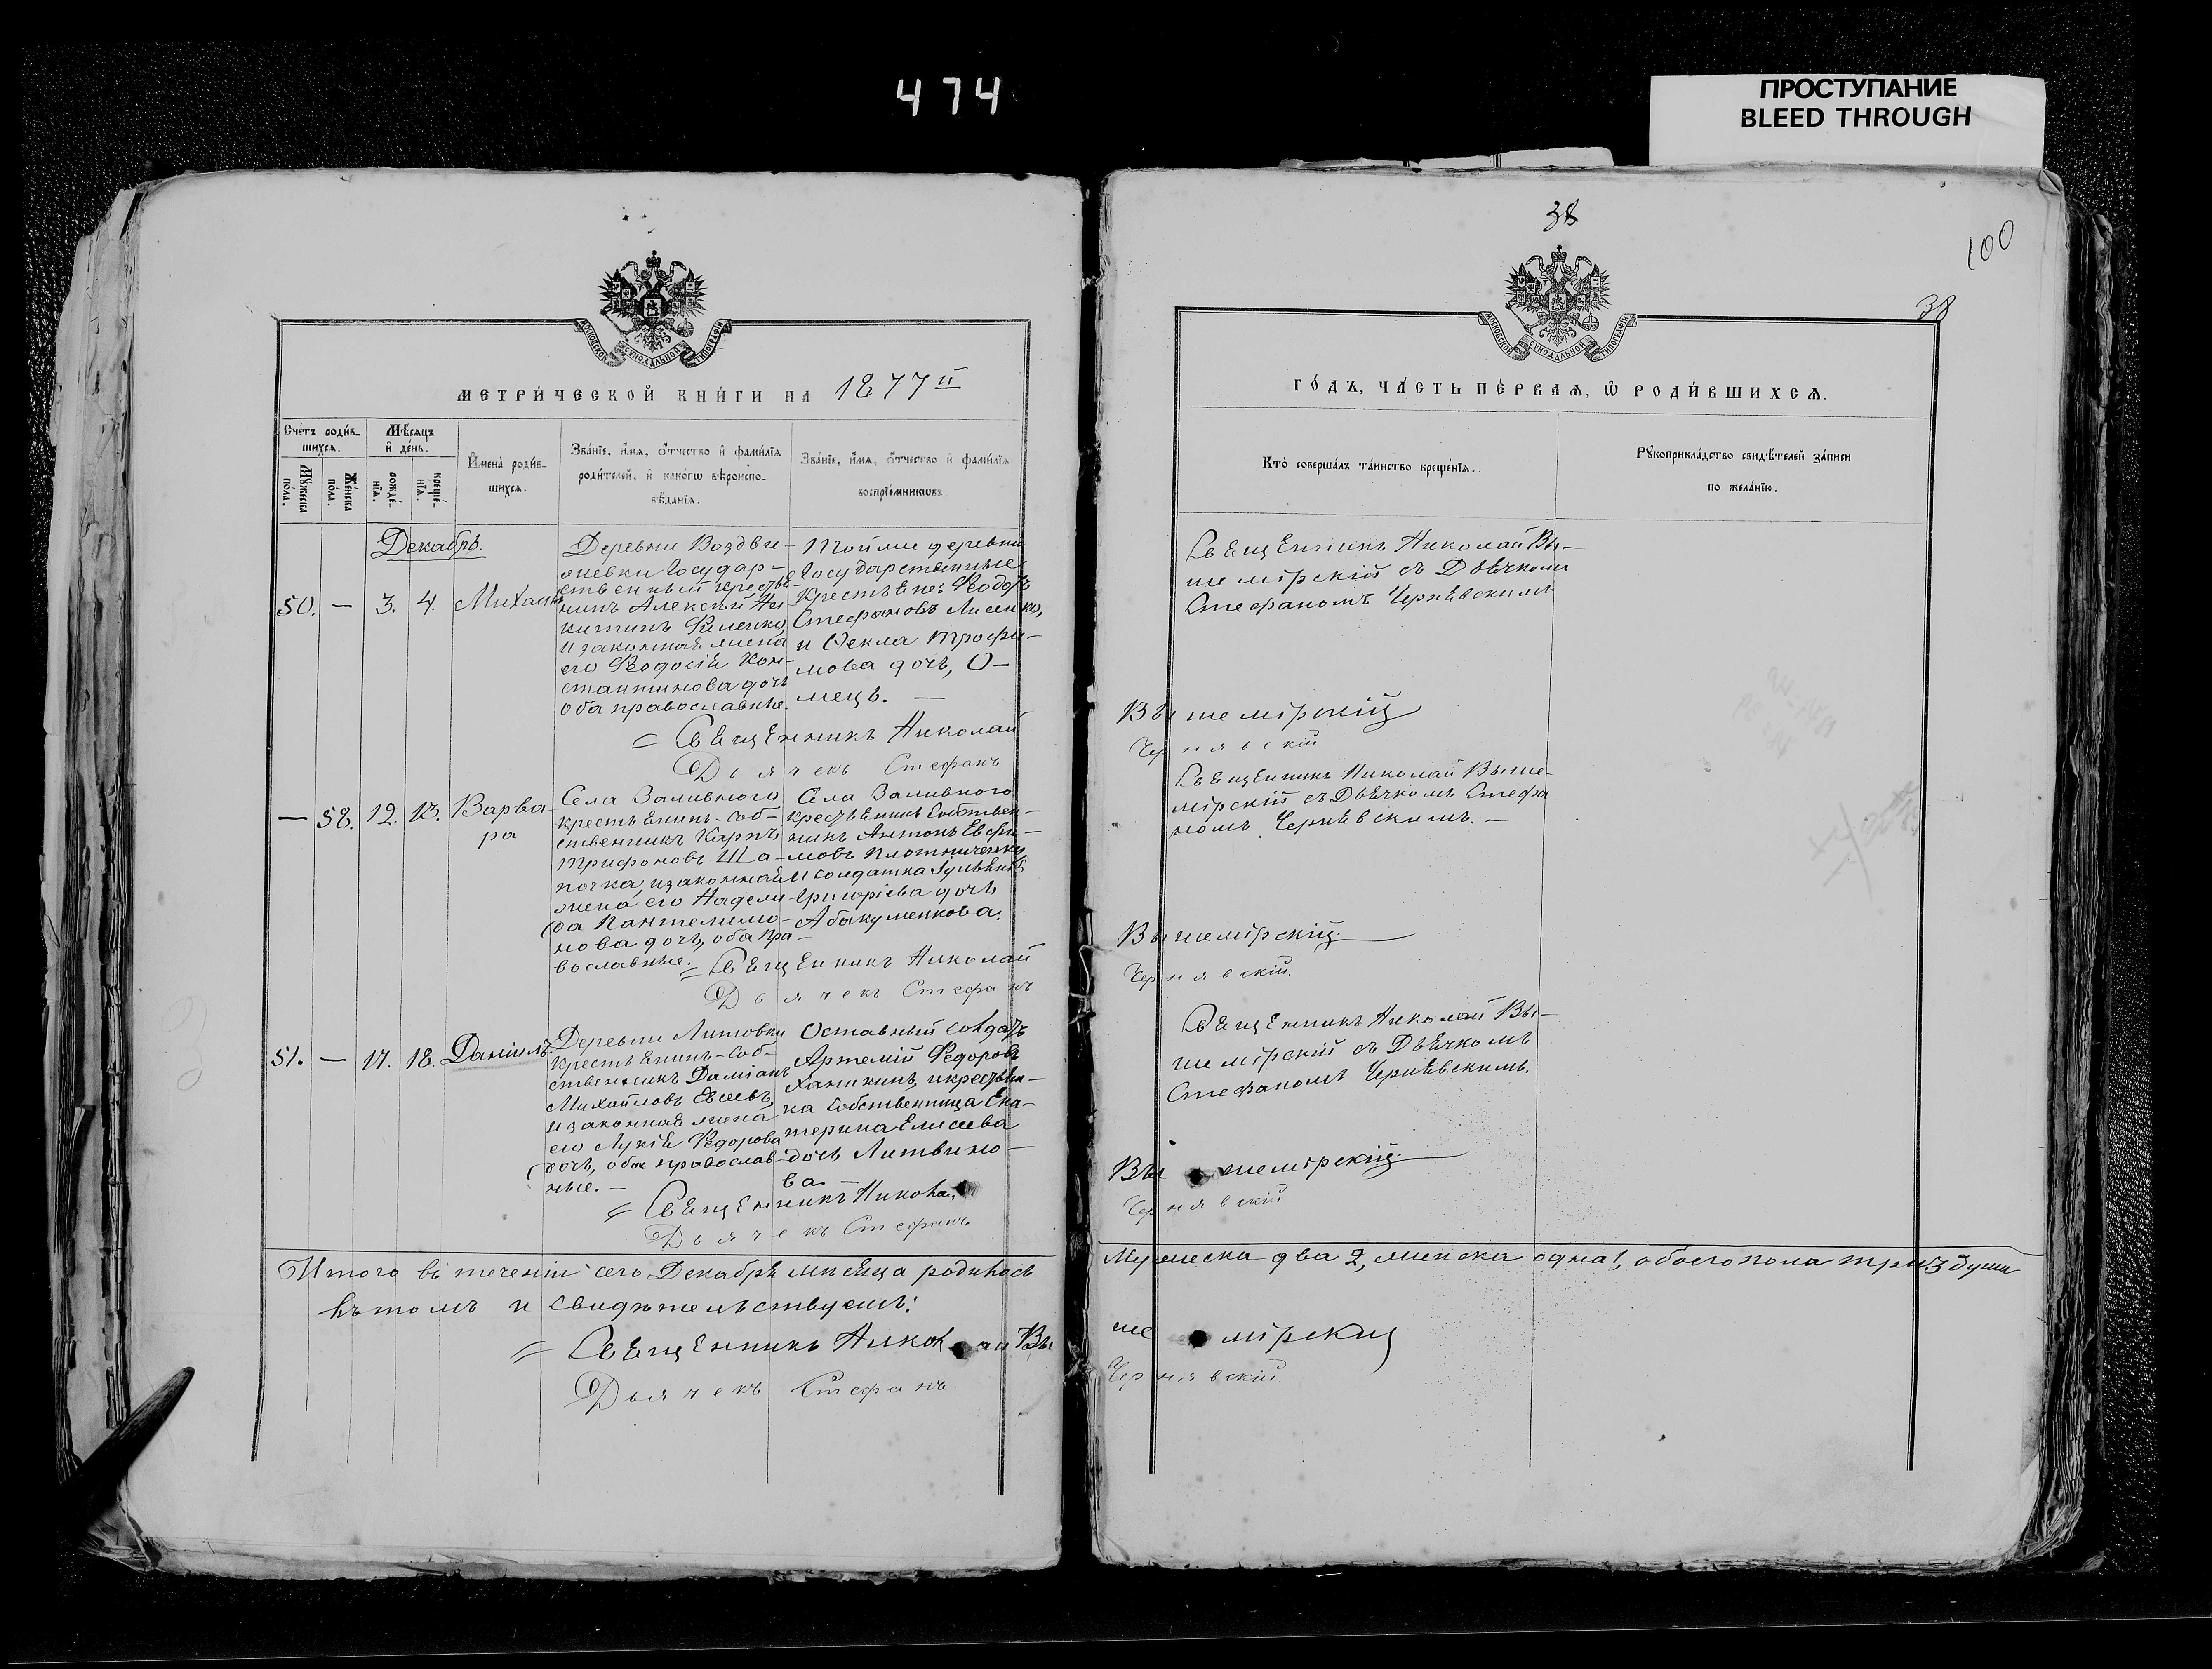 474
ПРОСТУПАНИЕ
BLEED THROUGH
38
100
38
МОСКОВСКОЙ СѴНОДАЛЬНОЙ ТИПОГРАФІИ
МОСКОВСКОЙ СѴНОДАЛЬНОЙ ТИПОГРАФІИ
МЕТРИ́ЧЕСКОЙ КНИ́ГИ НА 1877 й
ГО́ДЪ, ЧА́СТЬ ПЕ́РВАЯ, Ѽ РОДИ́ВШИХСЯ.
Сче́тъ роди́в-
шихся.
Му́жеска пола.
Же́нска по́ла.
Мѣ́сяцъ
и де́нь.
рожде́-
нїя.
креще́-
нїя.
Имена̀ роди́в-
шихся.
Зва́нїе, и́мя, о́тчество и фами́лїя
роди́телей, и како́гѡ вѣроиспо-
вѣ́данїя.
Зва́нїе, и́мя, о́тчество и фами́лїя
воспрїе́мникѡвъ.
Кто̀ соверша́лъ та́инство креще́нїя.
Рꙋкоприкла́дство свидѣ́телей за́писи
по жела́нїю.
Декабрь.
50. — 3. 4. Михаилъ
Деревни Воздви-
женки Государ-
ственный крестья-
нинъ Алексѣй Ни-
китинъ Филенко,
и законная жена
его Ѳеодосія Кон-
стантинова дочь
оба православные.
Той же деревни
Государственные
Крестьяне: Ѳеодоръ
Стефановъ Лисенко,
и Ѳекла Трофи-
мова дочь, О-
мецъ. —
Священникъ Николай Вы-
шемірскій съ Дьячкомъ
Стефаномъ Чернявскимъ
= Священникъ Николай Вышемірскій
Дьячекъ Стефанъ Чернявскій
— 58. 12. 13. Варва-
ра
Села Заливного
крестьянинъ-соб-
ственникъ Карпъ
Трифоновъ Ша-
почка, и законная
жена его Надеж-
да Пантелимо-
нова дочь, оба пра-
вославные.
Села Заливного
крестьянинъ Собствен-
никъ Антонъ Евфи-
мовъ Плотниченко,
и солдатка Іульянія
Григоріева дочь
Абакуменкова.
Священникъ Николай Выше-
мірскій съ Дьячкомъ Стефа
номъ Чернявскимъ. —
= Священникъ Николай Вышемірскій
Дьячекъ Стефанъ Чернявскій.
51. — 17. 18. Даніилъ
Деревни Литовки
Крестьянинъ-Соб-
ственникъ Даміанъ
Михайловъ Евсеевъ,
и законная жена
его Лукія Ѳедорова
дочь, оба православ-
ные. —
Отставный солдатъ
Артемій Ѳедоровъ
Ханикинъ, и крестьян-
ка Собственница Ека-
терина Елисеева
дочь Литвино-
ва. —
Священникъ Николай Вы-
шемірскій съ Дьячкомъ
Стефаномъ Чернявскимъ.
= Священникъ Николай Вышемірскій
Дьячекъ Стефанъ Чернявскій
Итого въ теченіи сего Декабря мѣсяца родилось Мужеска два 2, женска одна 1, обоего пола три 3 души
въ томъ и свидѣтельствуемъ:
= Священникъ Николай Вышемірскій
Дьячекъ Стефанъ Чернявскій